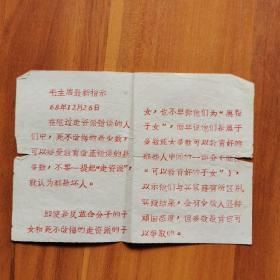 毛主席最新指示
68年12月26日
在犯过走资派错误的人
们中,死不改悔的是少数,
可以接受教育改正错误的是
多数,不要一提起"走资派",
就认为都是坏人。
即使是反革命分子的子
女和死不改悔的走资派的子
女,也不要称他们为"黑帮
子女",而要说他们是属于
多数或大多数可以教育好的
那些人中间的一部分(简称
"可以教育好的子女"),
以示他们与其家庭有所区别。
实践结果,会有少数人坚持
顽固态度,但多数是肯定可
以争取的。